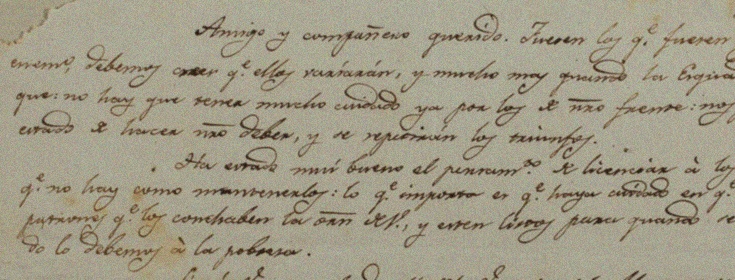 Amigo y compañero querido. Fueren los q.e fueren
enem.s debemos creer q.e ellos variarán, y mucho mas quando la
que: no hay que tener mucho cuidado ya por los de nro frente: nos
estado de hacer nro deber, y se repetirán los triunfos.
Ha estado mui bueno el pensam.to de licenciar à los
q.e no hay como mantenerlos: lo q.e importa es q.e haya cuidado en q.e
patrones q.e los conchaben la orn y esten listos para quando se
do lo debemos à la pobreza.